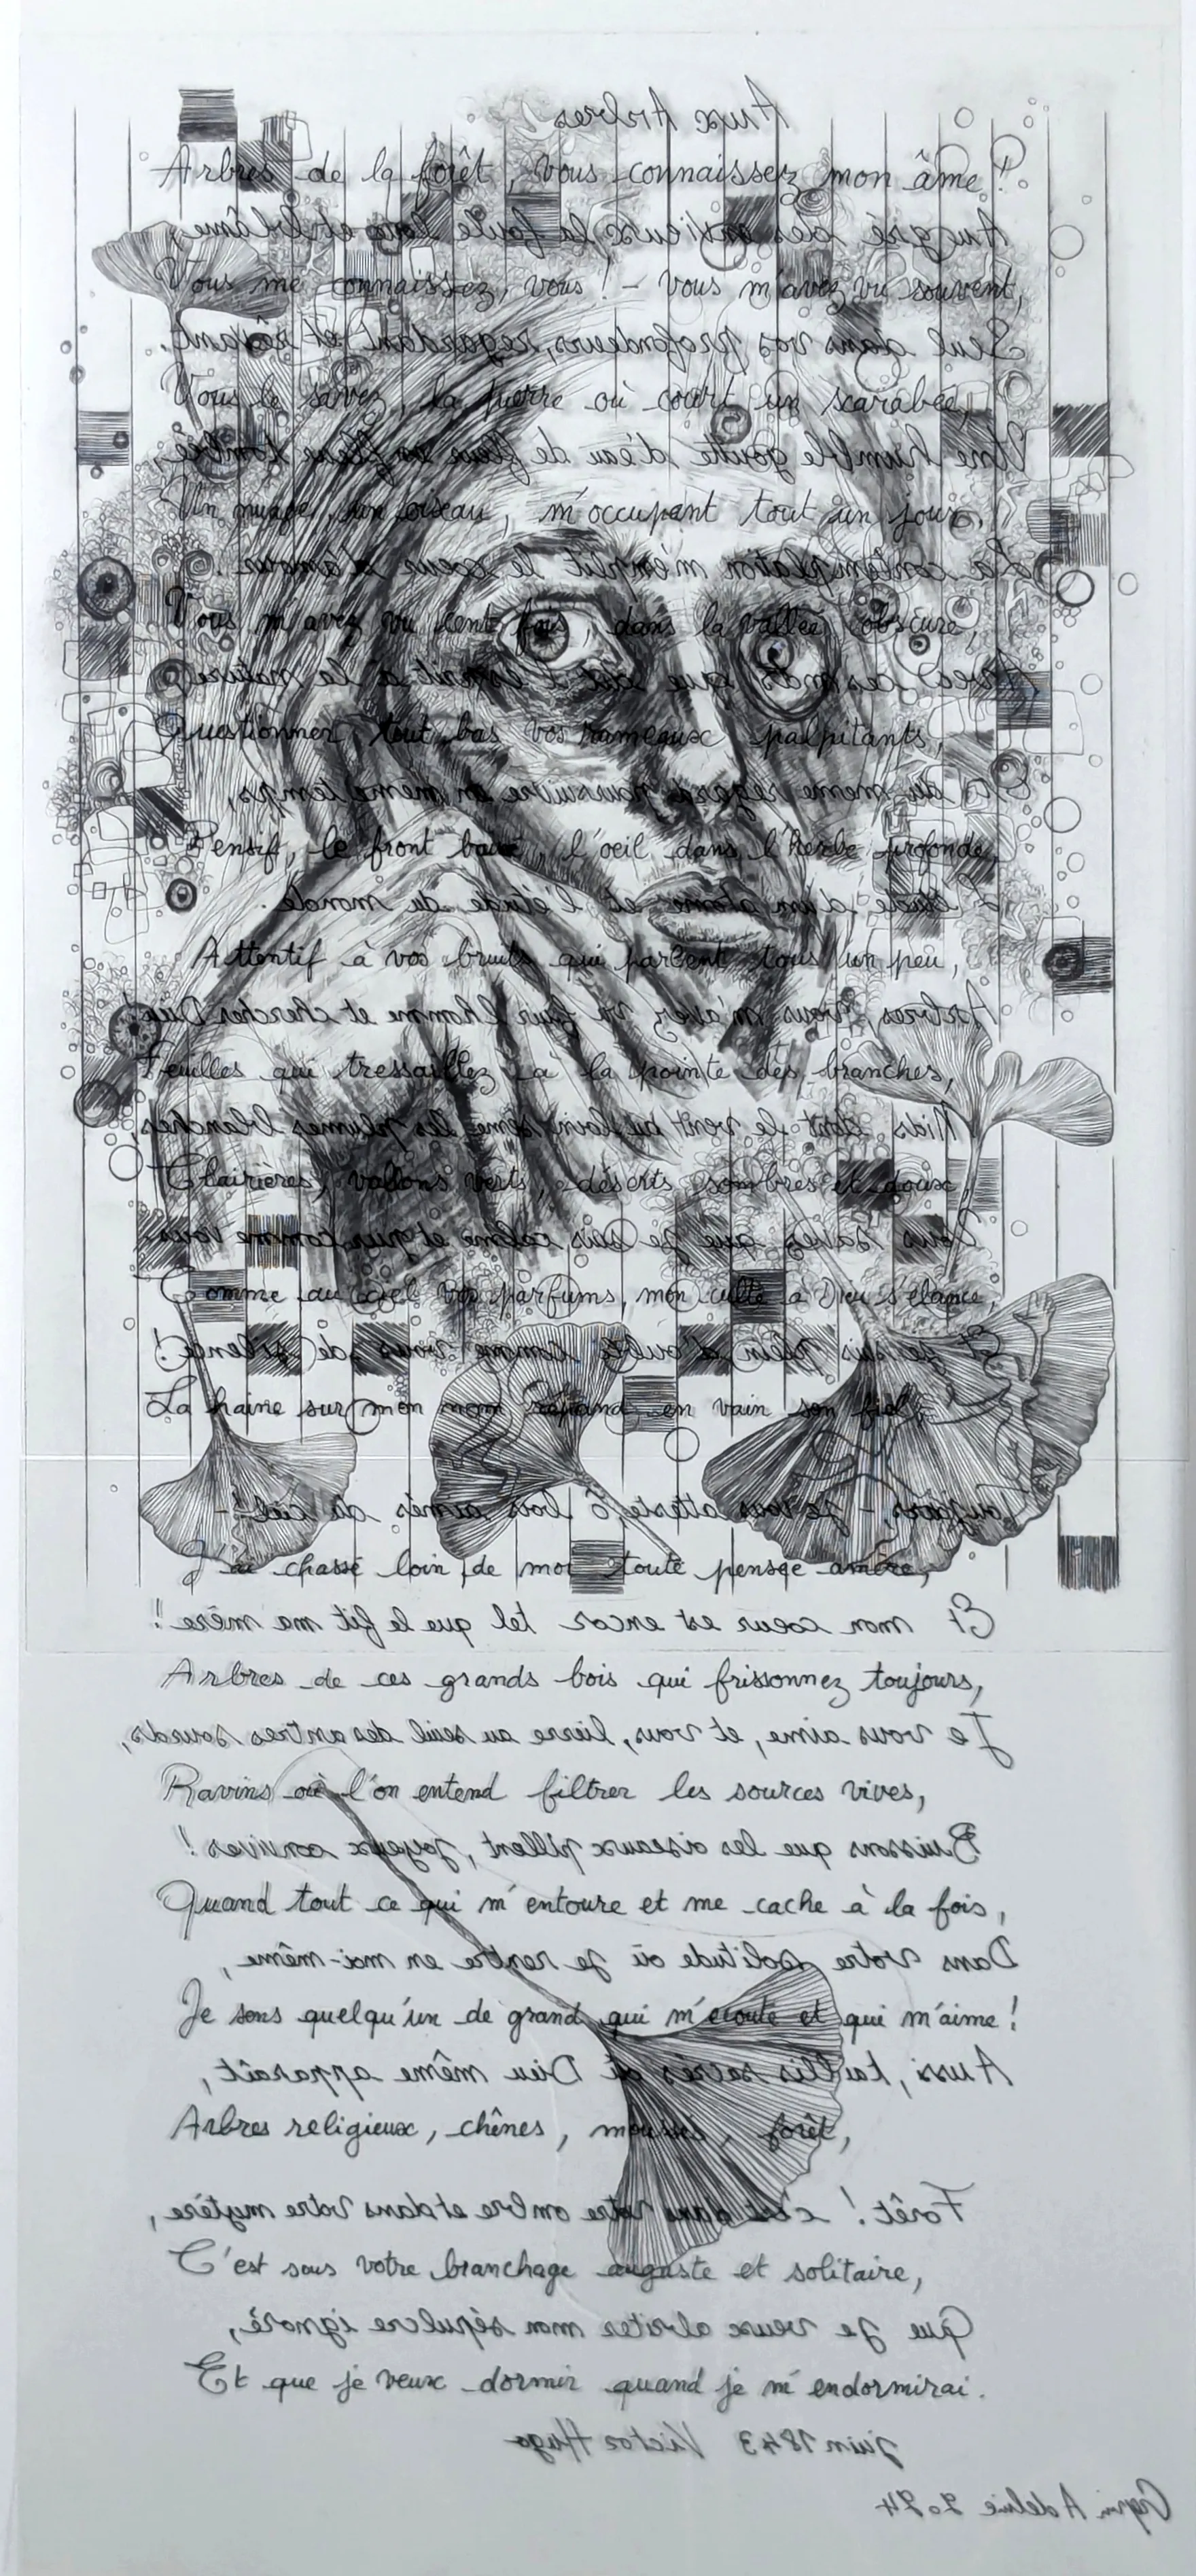 Aux Arbres
Arbres de la forêt, vous connaissez mon âme !
Au gré des envieux la foule loue et blâme ;
Vous me connaissez, vous ! - vous m'avez vu souvent,
Seul dans vos profondeurs, regardant et rêvant.
Vous le savez, la pierre où court un scarabée,
Une humble goutte d'eau de fleur en fleur tombée,
Un nuage, un oiseau, m'occupent tout un jour.
La contemplation m'emplit le coeur d'amour.
Vous m'avez vu cent fois, dans la vallée obscure,
Avec ces mots que dit l'esprit à la nature,
Questionner tout bas vos rameaux palpitants,
Et du même regard poursuivre en même temps,
Pensif, le front baissé, l'oeil dans l'herbe profonde,
L'étude d'un atome et l'étude du monde.
Attentif à vos bruits qui parlent tous un peu,
Arbres, vous m'avez vu fuir l'homme et chercher Dieu !
Feuilles qui tressaillez à la pointe des branches,
Nids dont le vent au loin sème les plumes blanches,
Clairières, vallons verts, déserts sombres et doux,
Vous savez que je suis calme et pur comme vous.
Comme au ciel vos parfums, mon culte à Dieu s'élance,
Et je suis plein d'oubli comme vous de silence !
La haine sur mon nom répand en vain son fiel ;
Toujours, - je vous atteste, ô bois aimés du ciel ! -
J'ai chassé loin de moi toute pensée amère,
Et mon coeur est encor tel que le fit ma mère !
Arbres de ces grands bois qui frissonnez toujours,
Je vous aime, et vous, lierre au seuil des antres sourds,
Ravins où l'on entend filtrer les sources vives,
Buissons que les oiseaux pillent, joyeux convives !
Quand tout ce qui m'entoure et me cache à la fois,
Dans votre solitude où je rentre en moi-même,
Je sens quelqu'un de grand qui m'écoute et qui m'aime !
Aussi, taillis sacrés où Dieu même apparaît,
Arbres religieux, chênes, mousses, forêt,
Forêt ! c'est dans votre ombre et dans votre mytère,
C'est sous votre branchage auguste et solitaire,
Que je veux abriter mon sépulcre ignoré,
Et que je veux dormir quand je m'endormirai.
juin 1843 Victor Hugo
Adeline 2024